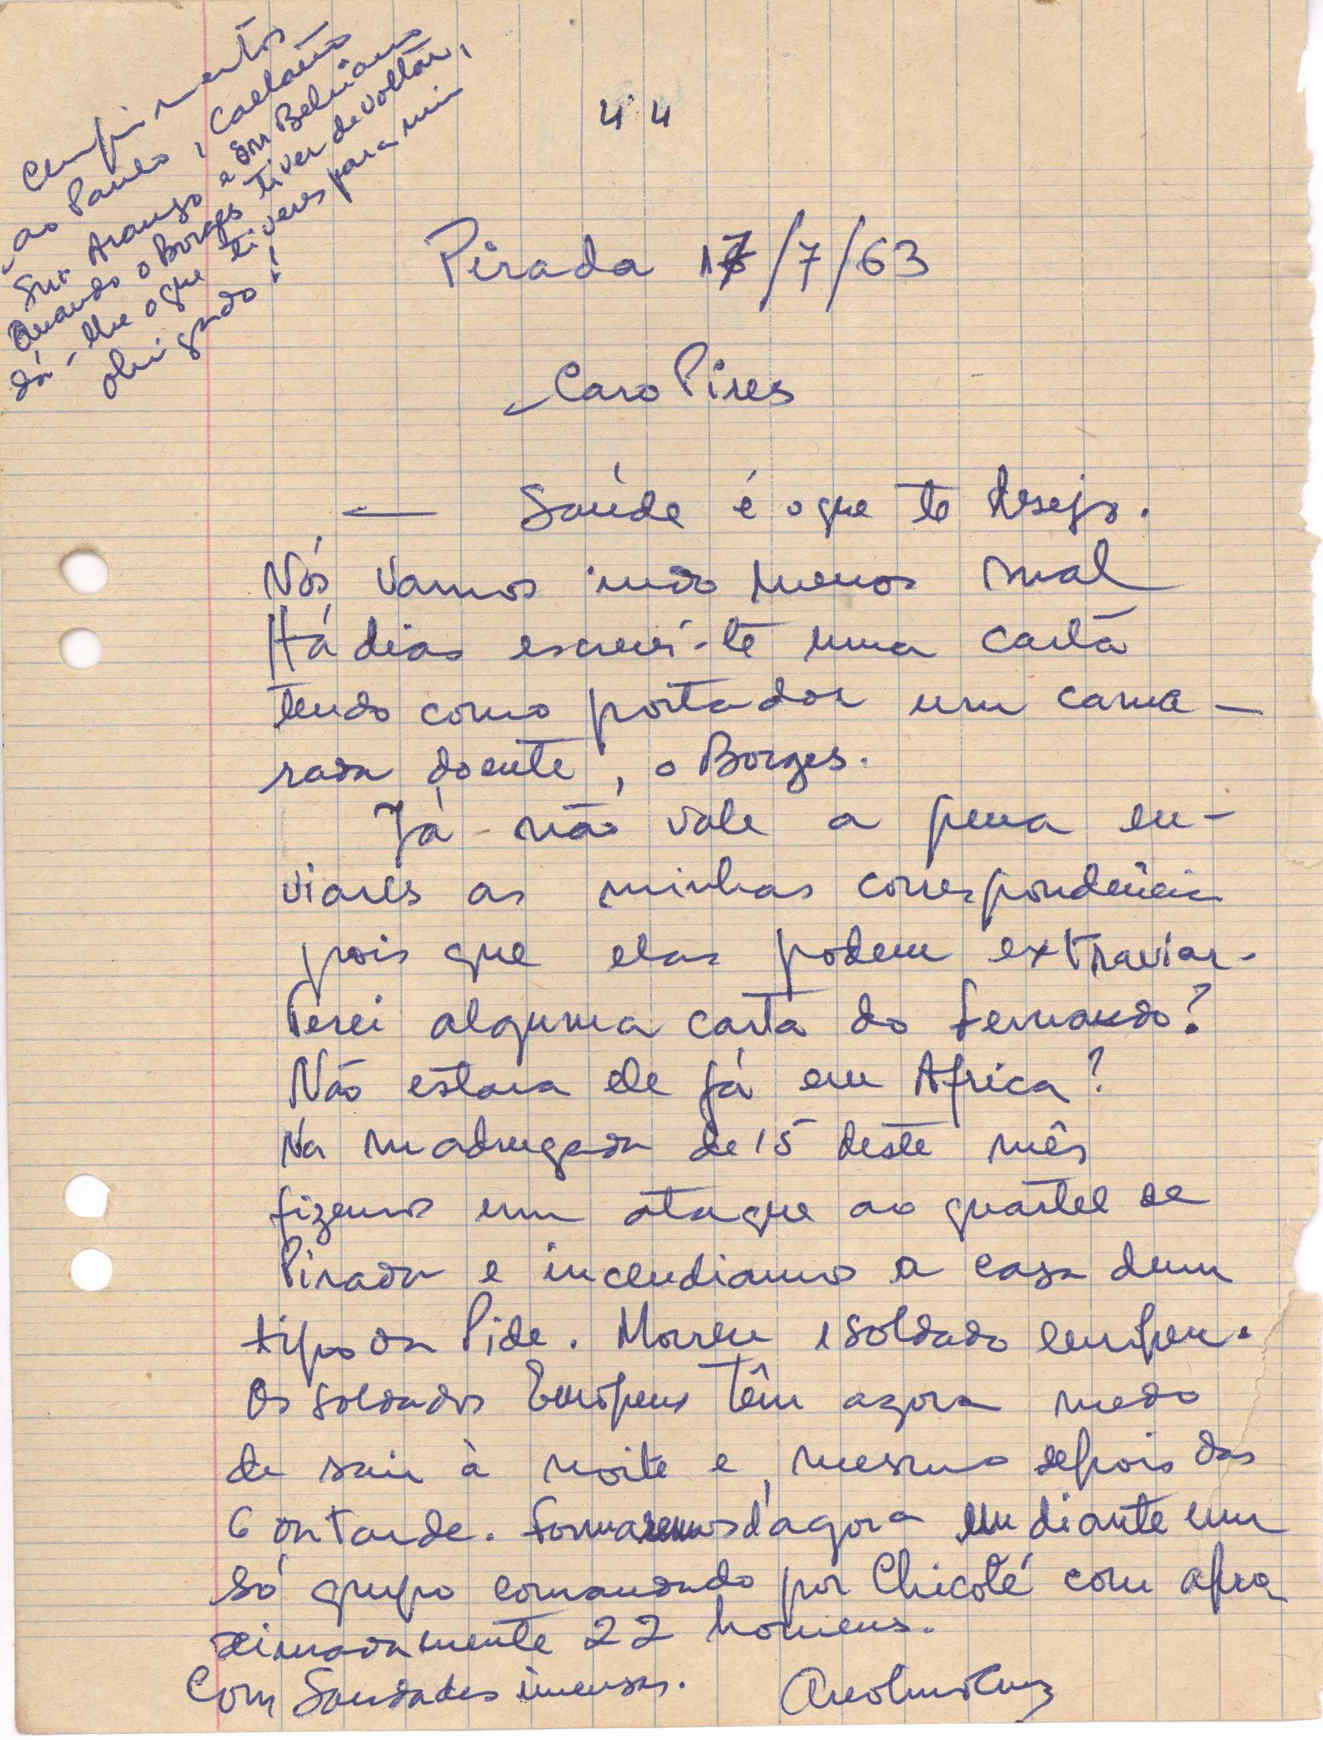 Cumprimentos
ao Paulo, Caetano
Snr. Araujo e Snr Belmiano
Quando o Borges tiver de voltar,
dá-lhe o que tiveres para mim
obrigado!
44
Pirada 17/7/63
Caro Pires
— Saúde é o que te desejo.
Nós vamos indo menos mal
Há dias escrevi-te uma carta
tendo como portador um cama-
rada doente, o Borges.
Já não vale a pena en-
viares as minhas correspondência
pois que elas podem extraviar-
Terei alguma carta do Fernando?
Não estara ele já em Africa?
Na madrugada de 15 deste mês
fizemos um ataque ao quartel de
Pirada e incendiamos a casa dum
tipo da Pide. Morreu 1 soldado europeu.
Os soldados Europeus têm agora medo
de sair à noite e, mesmo depois das
6 da tarde. Formaremos d'agora em diante um
só grupo comandado por Chicoté com apro
ximadamente 22 homens.
Com Saudades imensas.